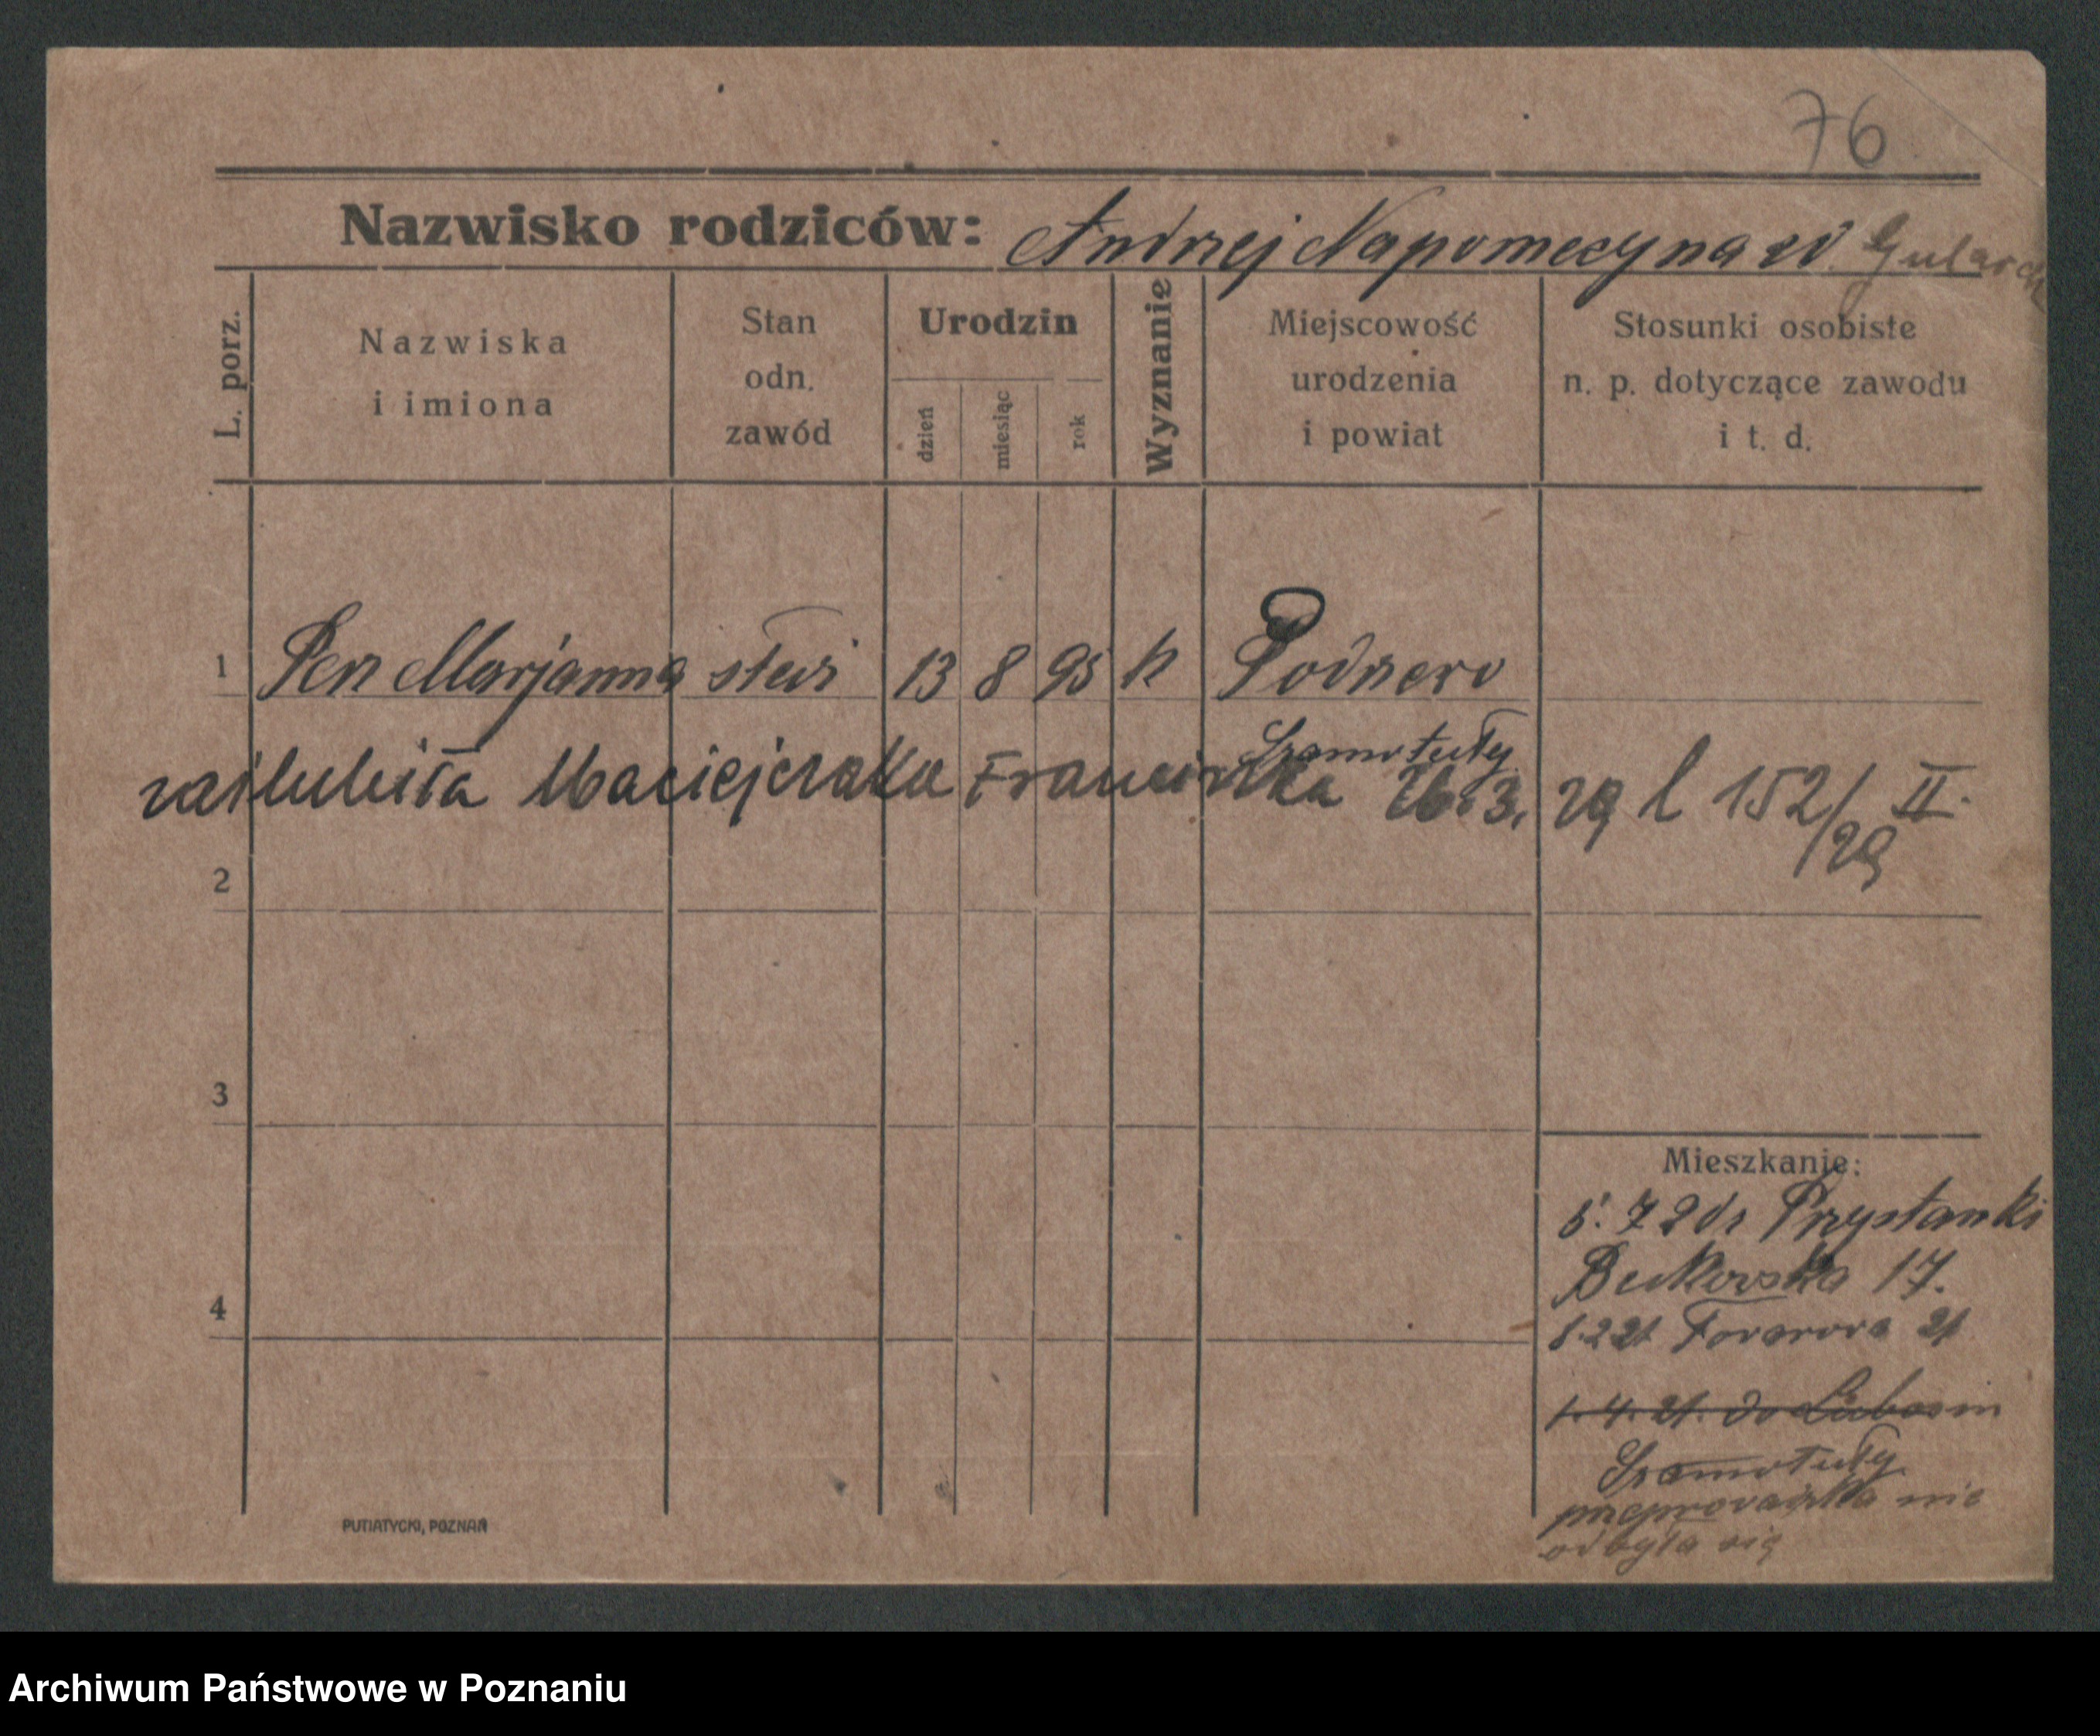 76
Nazwisko rodziców: Andrzej Napomecyna w
L. porz.
Nazwiska
i imiona
Stan
odn.
zawód
Urodzin
dzień
miesiąc
rok
Wyznanie
Miejscowość
urodzenia
i powiat
Stosunki osobiste
n. p. dotyczące zawodu
i t. d.
1 Marjanna 13 8 95 k
Szamotuły
zaślubiła Maciejczaka Franciszka 26.3. 29 l 152/29 II.
2
3
4
Mieszkanie:
Przystanki
Bukowska 17.
21
1. 4. 21. do
Szamotuły
przeprowadzka nie
odbyła się
PUTIATYCKI, POZNAŃ
Archiwum Państwowe w Poznaniu